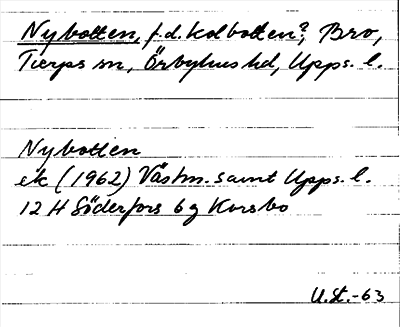 Nybotten, f.d. Kolbotten?, Bro,
Tierps sn, Örbyhus hd, Upps. l.
Nybotten
ek (1962) Västm. samt Upps. l.
12 H Söderfors 6 g Korsbo
U.St.-63